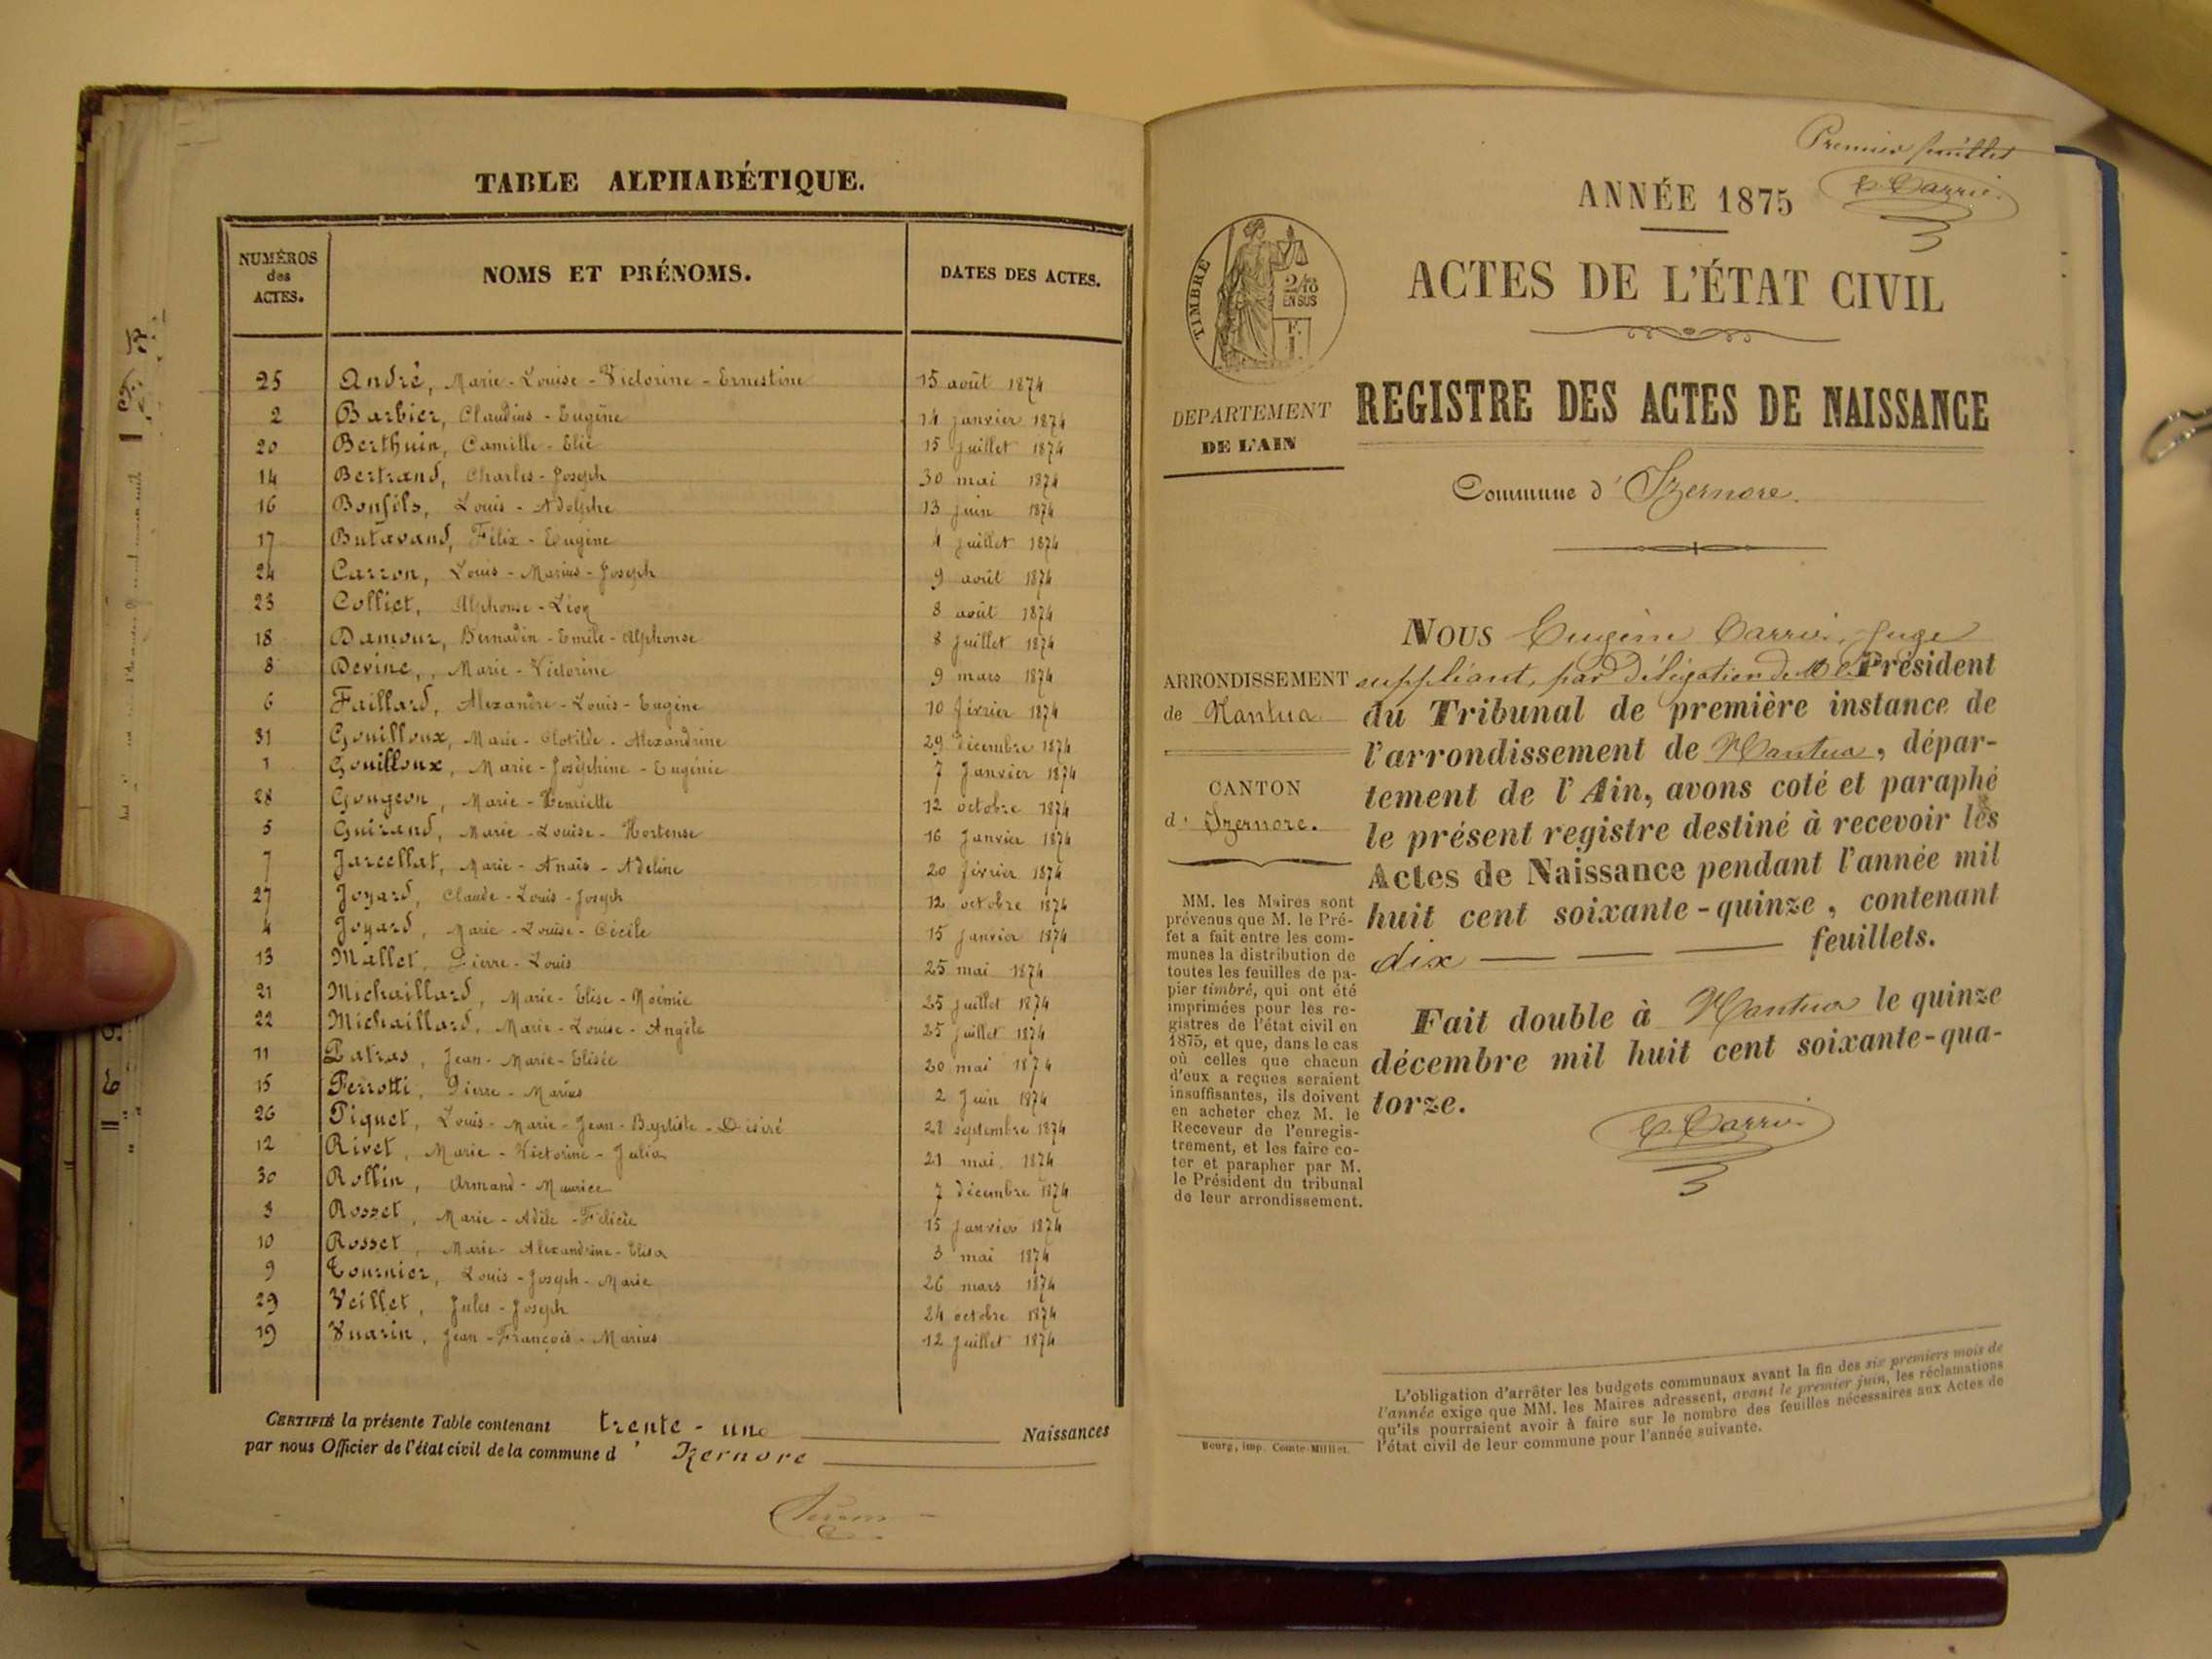 TABLE ALPHABÉTIQUE.
NUMÉROS des ACTES. NOMS ET PRÉNOMS. DATES DES ACTES.
25 André, Marie-Louise-Victorine-Ernestine 15 août 1874
2 Barbier, Claudius-Eugène 14 janvier 1874
20 Berthuin, Camille-Elie 15 juillet 1874
14 Bertrand, Charles-Joseph 30 mai 1874
16 Bonfils, Louis-Adolphe 13 juin 1874
17 Butavand, Félix-Eugène 4 juillet 1874
24 Carron, Louis-Marius-Joseph 9 août 1874
23 Colliet, Alphonse-Léon 8 août 1874
18 Damour, Bernadin-Emile-Alphonse 8 juillet 1874
8 Devine, Marie-Victorine 9 mars 1874
6 Faillard, Alexandre-Louis-Eugène 10 février 1874
31 Gouilloux, Marie-Clotilde-Alexandrine 29 décembre 1874
1 Gouilloux, Marie-Joséphine-Eugénie 7 Janvier 1874
28 Gougeon, Marie-Henriette 12 octobre 1874
5 Guirand, Marie-Louise-Hortense 16 Janvier 1874
7 Jarcellat, Marie-Anaïs-Adeline 20 février 1874
27 Joyard, Claude-Louis-Joseph 12 octobre 1874
4 Joyard, Marie-Louise-Cécile 15 janvier 1874
13 Mallet, Pierre-Louis 25 mai 1874
21 Michaillard, Marie-Elise-Noémie 25 juillet 1874
22 Michaillard, Marie-Louise-Angèle 25 juillet 1874
11 Patras, Jean-Marie-Elisée 20 mai 1874
15 Perrotti, Pierre-Marius 2 Juin 1874
26 Piquet, Louis-Marie-Jean-Baptiste-Désiré 28 septembre 1874
12 Rivet, Marie-Victorine-Julia 21 mai 1874
30 Rollin, Armand-Maurice 7 décembre 1874
3 Rosset, Marie-Adèle-Félicie 15 janvier 1874
10 Rosset, Marie-Alexandrine-Elisa 3 mai 1874
9 Tournier, Louis-Joseph-Marie 26 mars 1874
29 Veillet, Jules-Joseph 24 octobre 1874
19 Vuarin, Jean-François-Marius 12 Juillet 1874
CERTIFIÉ la présente Table contenant trente-une Naissances
par nous Officier de l'état civil de la commune d' Izernore
Premier feuillet
E. Carrié
ANNÉE 1875
ACTES DE L'ÉTAT CIVIL
TIMBRE
2/10
EN SUS
REGISTRE DES ACTES DE NAISSANCE
DÉPARTEMENT
DE L'AIN
Commune d' Izernore.
ARRONDISSEMENT
de Nantua
CANTON
d' Izernore.
MM. les Maires sont
prévenus que M. le Pré-
fet a fait entre les com-
munes la distribution de
toutes les feuilles de pa-
pier timbré, qui ont été
imprimées pour les re-
gistres de l'état civil en
1875, et que, dans le cas
où celles que chacun
d'eux a reçues seraient
insuffisantes, ils doivent
en acheter chez M. le
Receveur de l'enregis-
trement, et les faire co-
ter et parapher par M.
le Président du tribunal
de leur arrondissement.
NOUS Eugène Carrié, Juge
suppléant, par délégation de M. le Président
du Tribunal de première instance de
l'arrondissement de Nantua, dépar-
tement de l'Ain, avons coté et paraphé
le présent registre destiné à recevoir les
Actes de Naissance pendant l'année mil
huit cent soixante-quinze, contenant
dix feuillets.
Fait double à Nantua le quinze
décembre mil huit cent soixante-qua-
torze.
E. Carrié
L'obligation d'arrêter les budgets communaux avant la fin des six premiers mois de
l'année exige que MM. les Maires adressent, avant le premier juin, les réclamations
qu'ils pourraient avoir à faire sur le nombre des feuilles nécessaires aux Actes de
l'état civil de leur commune pour l'année suivante.
Bourg, imp. Comte-Milliet.